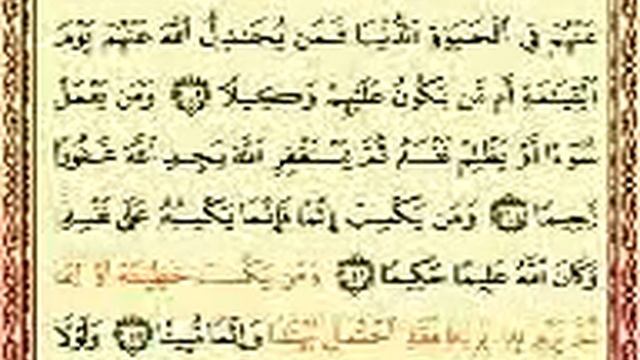 عَنْهُمْ فِي ٱلْحَيَوٰةِ ٱلدُّنْيَا فَمَن يُجَٰدِلُ ٱللَّهَ عَنْهُمْ يَوْمَ
ٱلْقِيَٰمَةِ أَم مَّن يَكُونُ عَلَيْهِمْ وَكِيلًا ١٠٩ وَمَن يَعْمَلْ
سُوٓءًا أَوْ يَظْلِمْ نَفْسَهُۥ ثُمَّ يَسْتَغْفِرِ ٱللَّهَ يَجِدِ ٱللَّهَ غَفُورًا
رَّحِيمًا ١١٠ وَمَن يَكْسِبْ إِثْمًا فَإِنَّمَا يَكْسِبُهُۥ عَلَىٰ نَفْسِهِۦ
وَكَانَ ٱللَّهُ عَلِيمًا حَكِيمًا ١١١ وَمَن يَكْسِبْ خَطِيٓـَٔةً أَوْ إِثْمًا
ثُمَّ يَرْمِ بِهِۦ بَرِيٓـًٔا فَقَدِ ٱحْتَمَلَ بُهْتَٰنًا وَإِثْمًا مُّبِينًا ١١٢ وَلَوْلَا